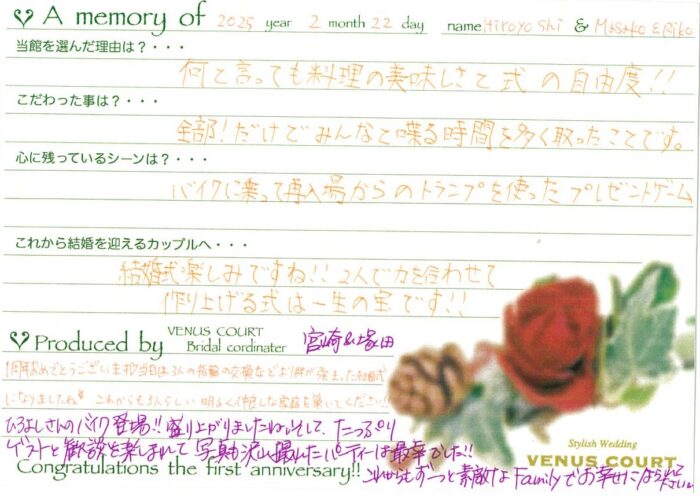 A memory of 2025 year 2 month 22 day name Hiroyoshi & Masako & Riko
当館を選んだ理由は?・・・
何と言っても料理の美味しさと式の自由度!!
こだわった事は?・・・
全部!だけどみんなと喋る時間を多く取ったことです。
心に残っているシーンは?・・・
バイクに乗って再入場からのトランプを使ったプレゼントゲーム
これから結婚を迎えるカップルへ・・・
結婚式楽しみですね!!2人で力を合わせて
作り上げる式は一生の宝です!!
Produced by VENUS COURT Bridal cordinater 宮崎&塚田
1周年おめでとうございます
になりましたね これからも3人らしい明るく仲良しな家庭を築いてください!!
ひろよしさんのバイク登場!!盛り上がりましたね。そして、たっぷり
ゲストと歓談を楽しまれて写真も沢山撮れたパーティーは最幸でした!!
Congratulations the first anniversary!! これからもずーっと素敵なFamilyでお幸せに
Stylish Wedding
VENUS COURT